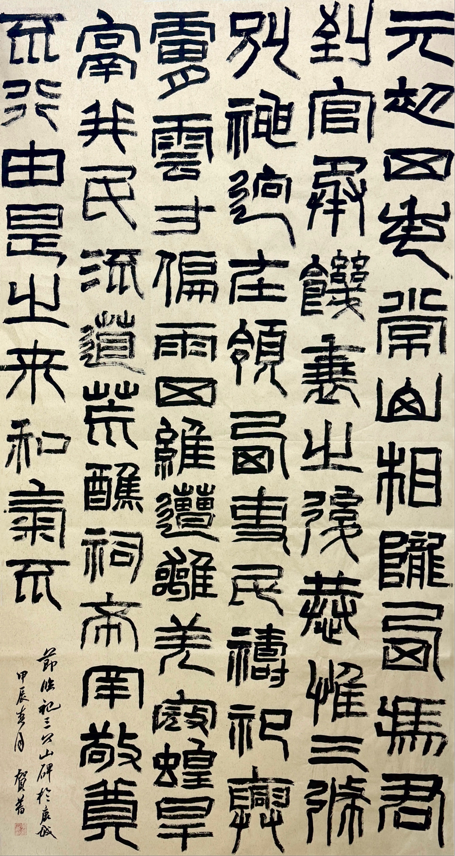 元初四年常山相隴西馮君
到官承饑衰之後惟三條
別神迥在領西吏民禱祀興
膚雲寸偏雨四維遭離羌寇蝗旱
鬲我民流道荒醮祠希罕敬奠
不行由是之來和氣不
節臨祀三公山碑於
甲辰春月 賀